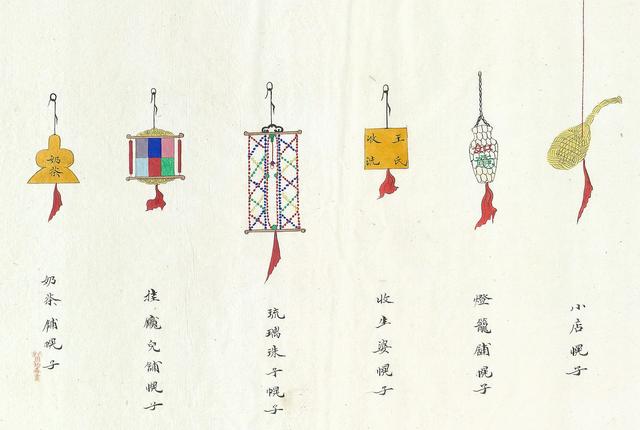 小店幌子
燈籠舖幌子
王氏
收洗
收生婆幌子
琉璃珠子幌子
挂兒舖幌子
奶茶
奶茶舖幌子